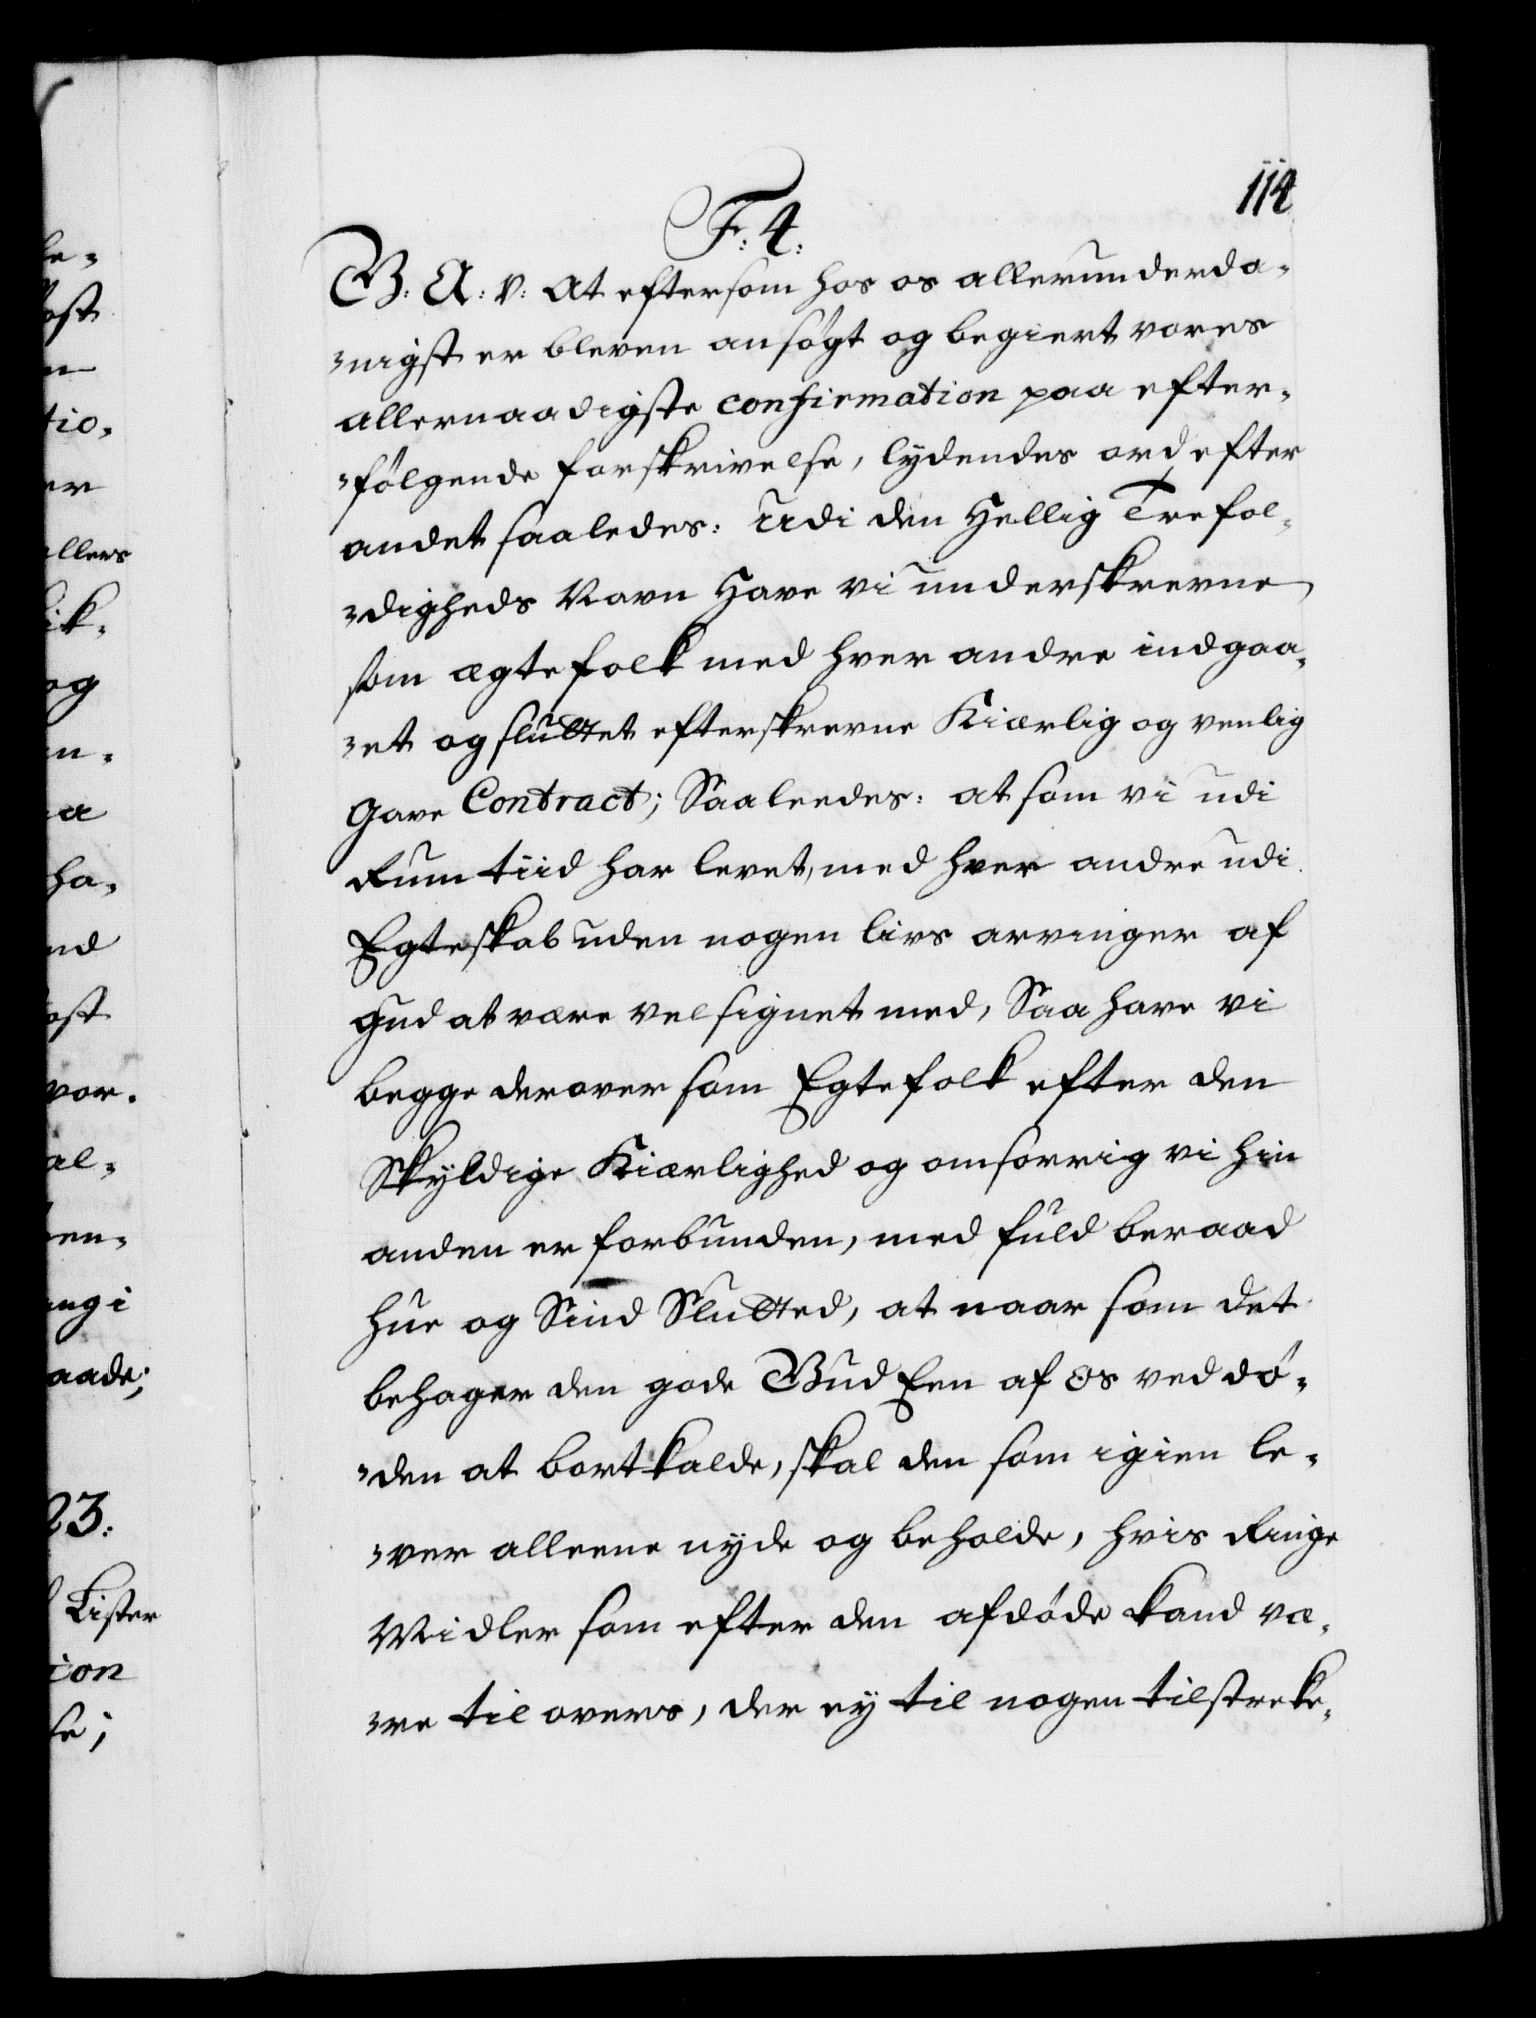 114
F: 4:
G: A: V: At eftersom hos os allerunderda-
-nigst er bleven ansøgt og begiert vores
allernaadigste confirmation paa efter-
-følgende forskrivelse, lydendes ord efter
andet saaledes: Udi den Hellig Trefol-
-digheds Navn Have vi underskrevne
som ægtefolk med hver andre indgaa-
-et og sluttet efterskrevne Kiærlig og venlig
Gave Contract; Saaleedes: at som vi udi
Rum tiid har levet, med hver andre udi
Egteskab uden nogen livs arvinger af
Gud at være velsignet med, Saa have vi
begge derover som Egtefolk efter den
Skyldige Kiærlighed og omsorrig vi hin
anden er forbunden, med fuld beraad
hue og Sind Slutted, at naar som det
behager den gode Gud Een af os ved dø-
-den at bortkalde, skal den som igien le-
-ver alleene nyde og beholde, hvis Ringe
Midler som efter den afdøde kand væ-
-re til overs, der ey til nogen tilstreke-
le-
ost
n
tio-
er
ellers
lik-
og
en-
a
ha-
nd
ost
vor-
al-
en-
ng i
aade;
23:
Lister
ion
se;